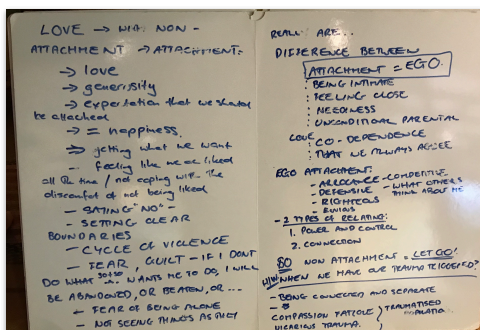 LOVE → WITH NON-
ATTACHMENT → ATTACHMENT:
→ love
→ generosity
→ expectation that we should
be attached
→ = happiness.
→ getting what we want
- feeling like we are liked
all the time / not coping with the
discomfort of not being liked
- SAYING "NO" -
- SETTING CLEAR
BOUNDARIES
- CYCLE OF VIOLENCE
- FEAR, GUILT - IF I DONT
DO WHAT WANTS ME TO DO, I WILL
BE ABANDONED, OR BEATEN, OR...
- FEAR OF BEING ALONE
- NOT SEEING THINGS AS THEY
REALLY ARE...
DIFFERENCE BETWEEN
ATTACHMENT = EGO.
: BEING INTIMATE
: FEELING CLOSE
: NEEDINESS
: UNCONDITIONAL PARENTAL
LOVE
: CO-DEPENDENCE
: THAT WE ALWAYS AGREE
EGO ATTACHMENT:
- ARROGANCE - COMPETITIVE
- DEFENSIVE - WHAT OTHERS
THINK ABOUT ME
- RIGHTEOUS
- ENVIOUS
- 2 TYPES OF RELATING:
1. POWER AND CONTROL
2. CONNECTION
SO NON ATTACHMENT = LET GO!
WHEN WE HAVE OUR TRAUMA TRIGGERED?
- BEING CONNECTED AND SEPARATE
COMPASSION FATIGUE } TRAUMATISED
VICARIOUS TRAUMA.